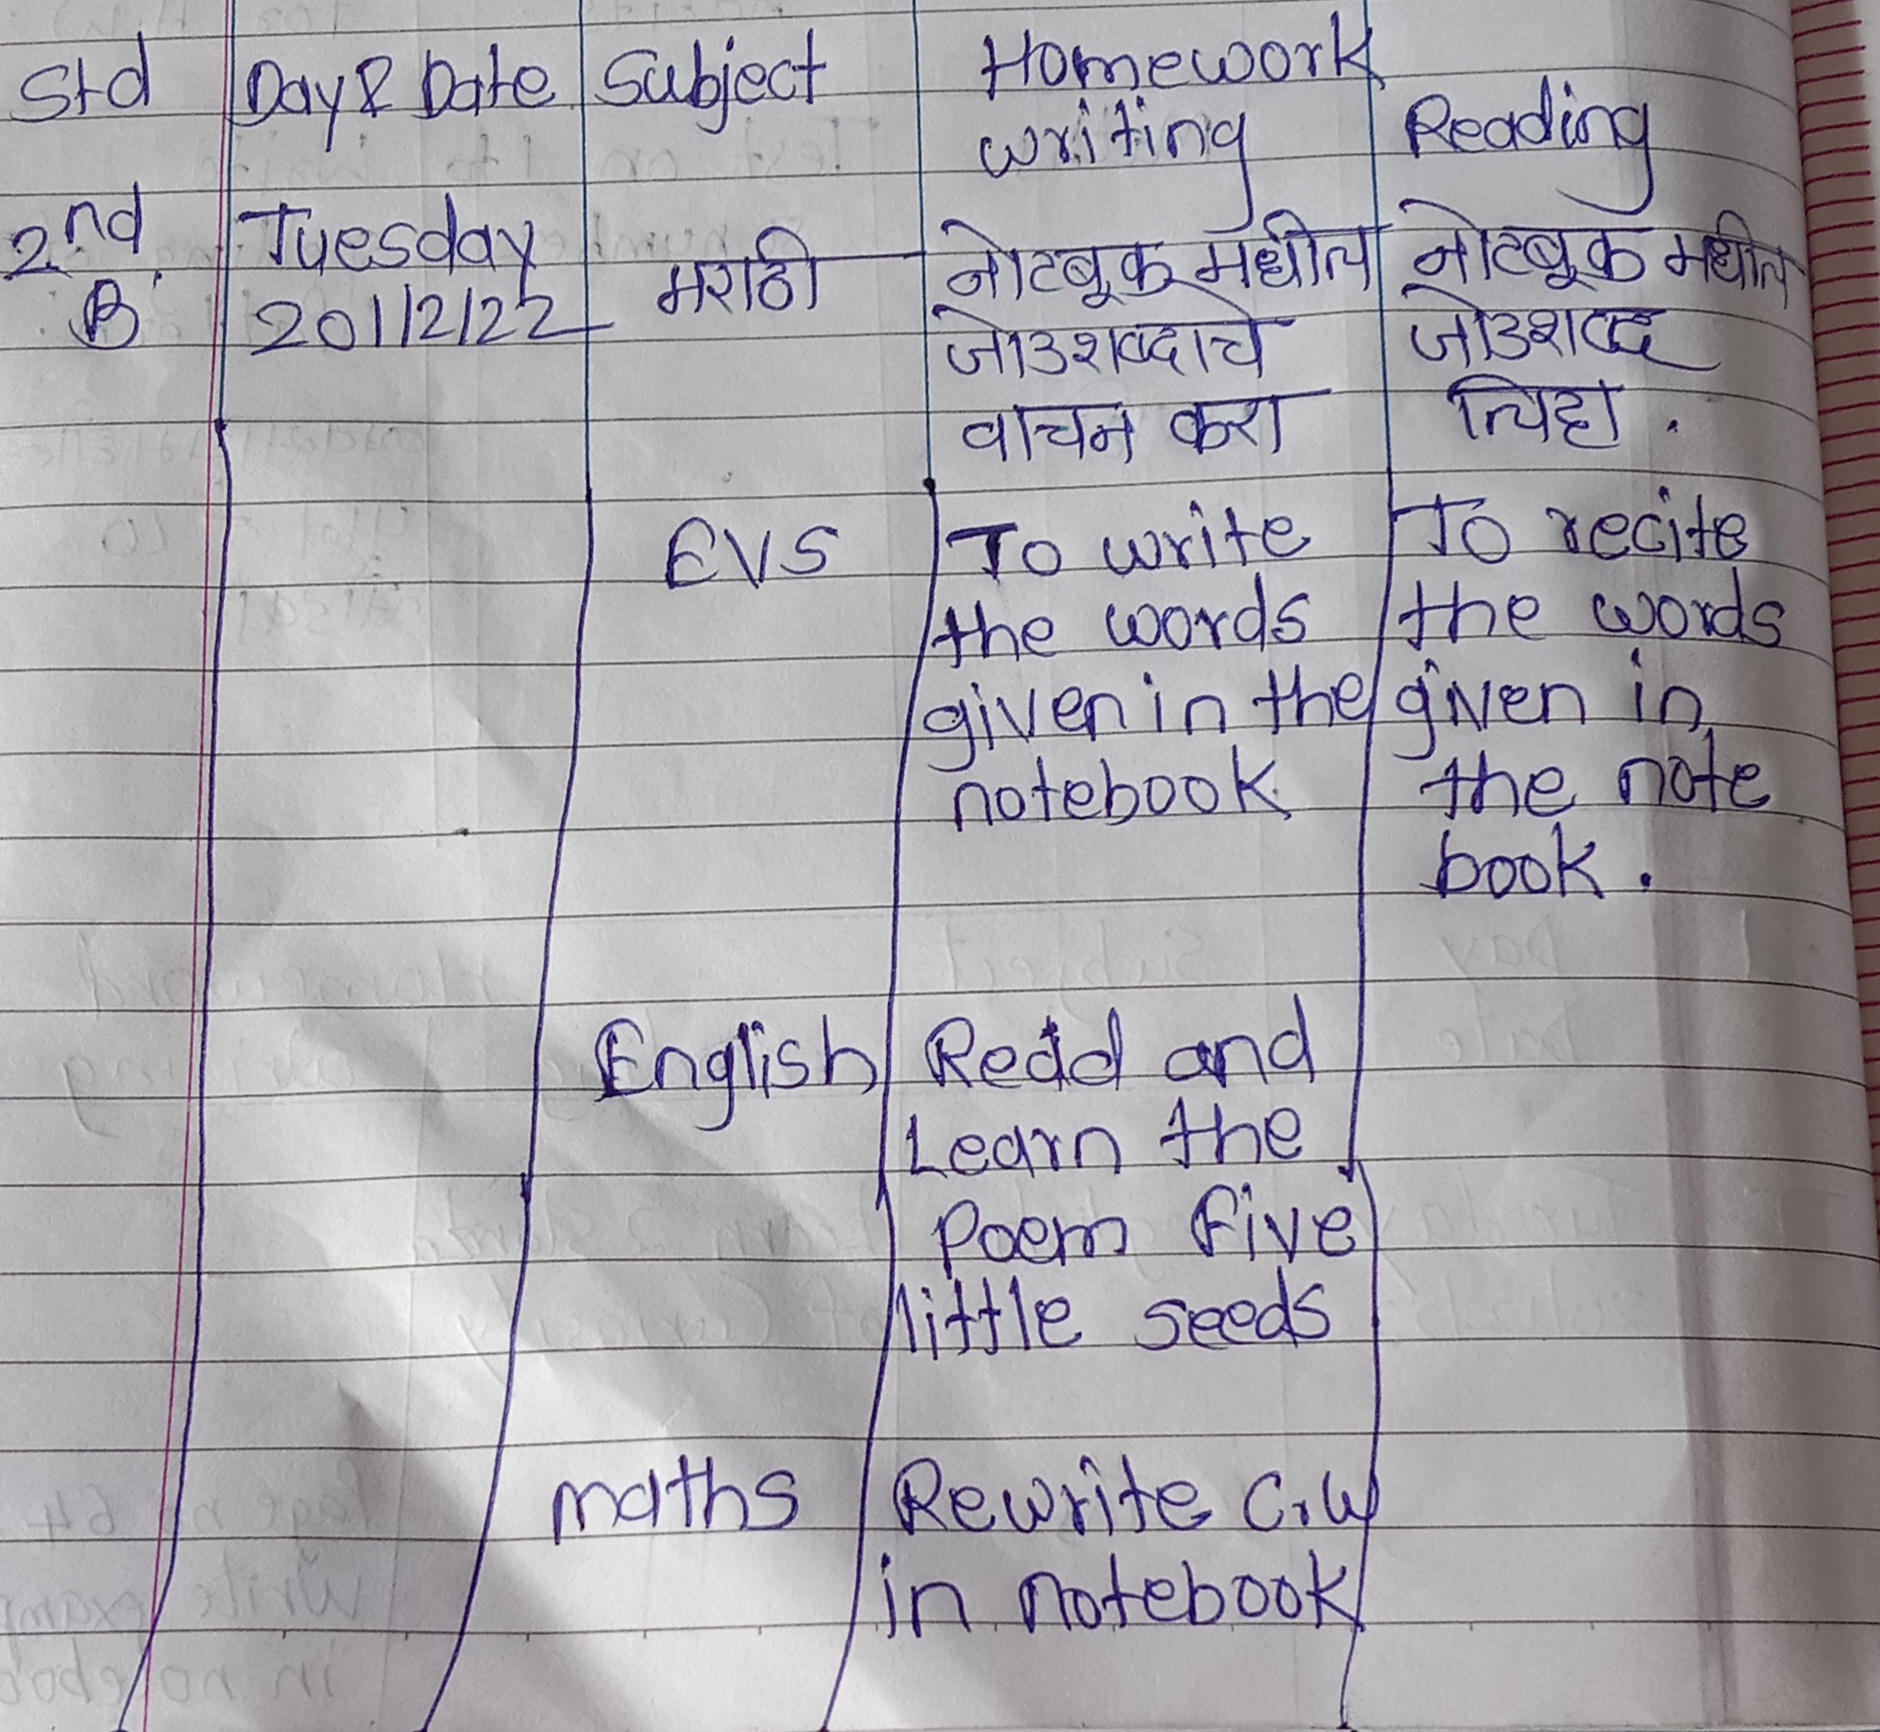 Std Day & Date Subject Homework
writing Reading
2nd Tuesday मराठी नोटबूक मधील नोटबूक मधील
B 20/12/22 जोडशब्दाचे जोडशब्द
वाचन करा लिहा.
EVS To write To recite
the words the words
given in the given in
notebook the note
book.
English Read and
Learn the
Poem Five
little seeds
maths Rewrite C.W
in notebook